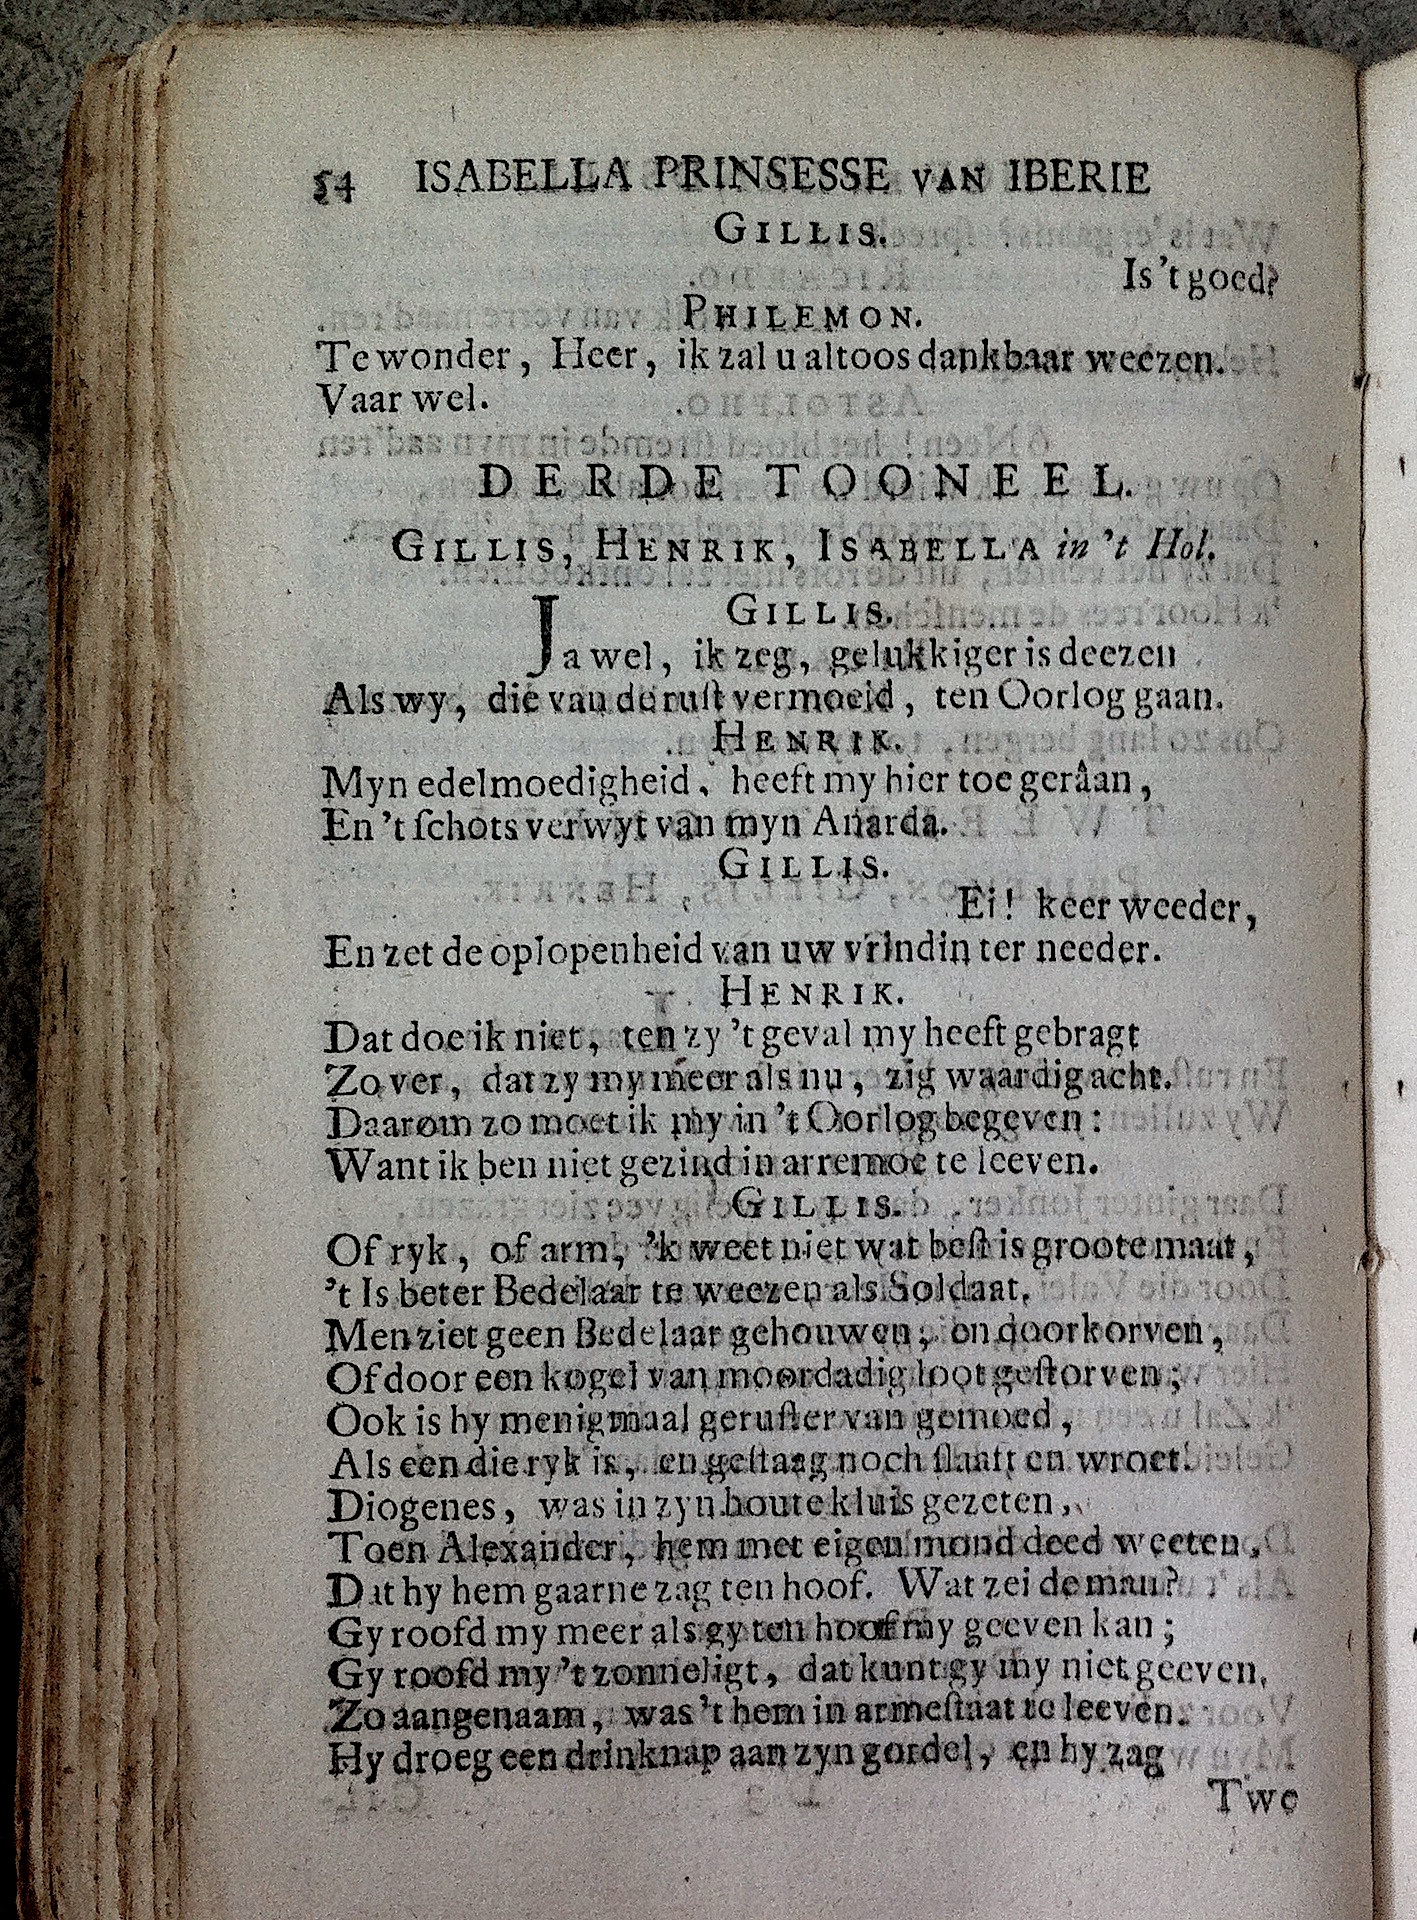 54 ISABELLA PRINSESSE VAN IBERIE
GILLIS.
Is 't goed?
PHILEMON.
Te wonder, Heer, ik zal u altoos dankbaar weezen.
Vaar wel.
DERDE TOONEEL.
GILLIS, HENRIK, ISABELLA in 't Hol.
GILLIS.
Ja wel, ik zeg, gelukkiger is deezen
Als wy, die van de ruſt vermoeid, ten Oorlog gaan.
HENRIK.
Myn edelmoedigheid, heeft my hier toe gerâan,
En 't ſchots verwyt van myn Anarda.
GILLIS.
Ei! keer weeder,
En zet de oplopenheid van uw vrindin ter needer.
HENRIK.
Dat doe ik niet, ten zy 't geval my heeft gebragt
Zo ver, dat zy my meer als nu, zig waardig acht.
Daarom zo moet ik my in 't Oorlog begeven:
Want ik ben niet gezind in arremoe te leeven.
GILLIS.
Of ryk, of arm, 'k weet niet wat beſt is groote maat,
't Is beter Bedelaar te weezen als Soldaat.
Men ziet geen Bedelaar gehouwen, en doorkorven,
Of door een kogel van moordadig loot geſtorven;
Ook is hy menigmaal geruſter van gemoed,
Als een die ryk is, en geſtaag noch ſlaaft en wroet.
Diogenes, was in zyn houte kluis gezeten,
Toen Alexander, hem met eigen mond deed weeten,
Dat hy hem gaarne zag ten hoof. Wat zei de man?
Gy roofd my meer als gy ten hoof my geeven kan;
Gy roofd my 't zonneligt, dat kunt gy my niet geeven,
Zo aangenaam, was 't hem in armeſtaat te leeven.
Hy droeg een drinknap aan zyn gordel, en hy zag
Twe